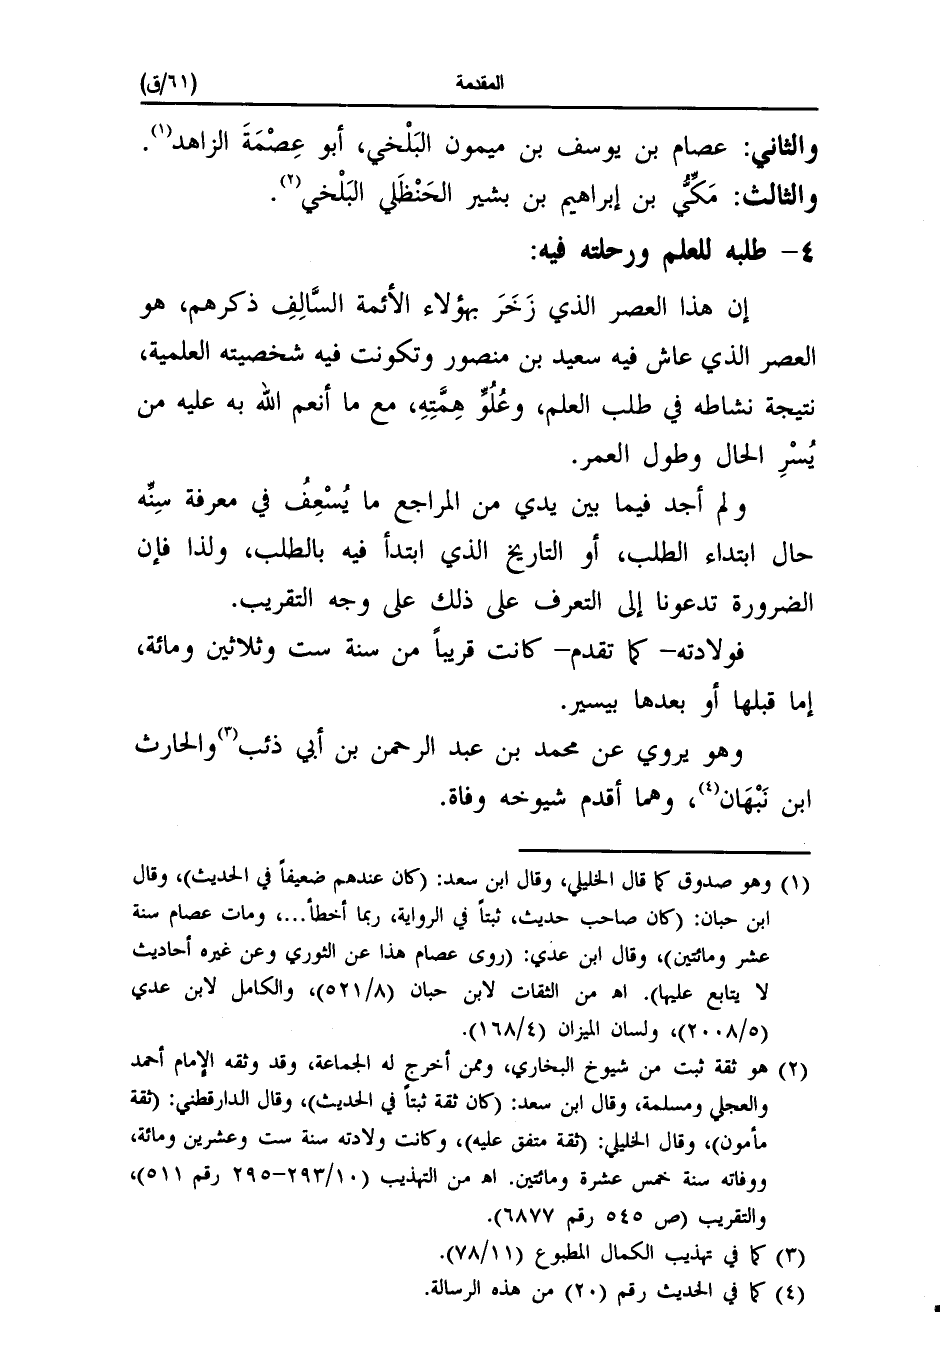 المقدمة (٦١/ق)
والثاني: عصام بن يوسف بن ميمون البَلْخي، أبو عِصْمَةَ الزاهد(١).
والثالث: مَكِّيُّ بن إبراهيم بن بشير الحَنْظَلي البَلْخي(٢).
٤- طلبه للعلم ورحلته فيه:
إن هذا العصر الذي زَخَرَ بهؤلاء الأئمة السَّالِفِ ذكرهم، هو
العصر الذي عاش فيه سعيد بن منصور وتكونت فيه شخصيته العلمية،
نتيجة نشاطه في طلب العلم، وعُلُوِّ هِمَّتِهِ، مع ما أنعم الله به عليه من
يُسْرِ الحال وطول العمر.
ولم أجد فيما بين يدي من المراجع ما يُسْعِفُ في معرفة سِنِّه
حال ابتداء الطلب، أو التاريخ الذي ابتدأ فيه بالطلب، ولذا فإن
الضرورة تدعونا إلى التعرف على ذلك على وجه التقريب.
فولادته- كما تقدم- كانت قريباً من سنة ست وثلاثين ومائة،
إما قبلها أو بعدها بيسير.
وهو يروي عن محمد بن عبد الرحمن بن أبي ذئب(٣) والحارث
ابن نَبْهَان(٤)، وهما أقدم شيوخه وفاة.
(١) وهو صدوق كما قال الخليلي، وقال ابن سعد: (كان عندهم ضعيفاً في الحديث)، وقال
ابن حبان: (كان صاحب حديث، ثبتاً في الرواية، ربما أخطأ...، ومات عصام سنة
عشر ومائتين)، وقال ابن عدي: (روى عصام هذا عن الثوري وعن غيره أحاديث
لا يتابع عليها). اهـ من الثقات لابن حبان (٥٢١/٨)، والكامل لابن عدي
(٢٠٠٨/٥)، ولسان الميزان (١٦٨/٤).
(٢) هو ثقة ثبت من شيوخ البخاري، وممن أخرج له الجماعة، وقد وثقه الإمام أحمد
والعجلي ومسلمة، وقال ابن سعد: (كان ثقة ثبتاً في الحديث)، وقال الدارقطني: (ثقة
مأمون)، وقال الخليلي: (ثقة متفق عليه)، وكانت ولادته سنة ست وعشرين ومائة،
ووفاته سنة خمس عشرة ومائتين. اهـ من التهذيب (٢٩٣/١٠-٢٩٥ رقم ٥١١)،
والتقريب (ص ٥٤٥ رقم ٦٨٧٧).
(٣) كما في تهذيب الكمال المطبوع (٧٨/١١).
(٤) كما في الحديث رقم (٢٠) من هذه الرسالة.